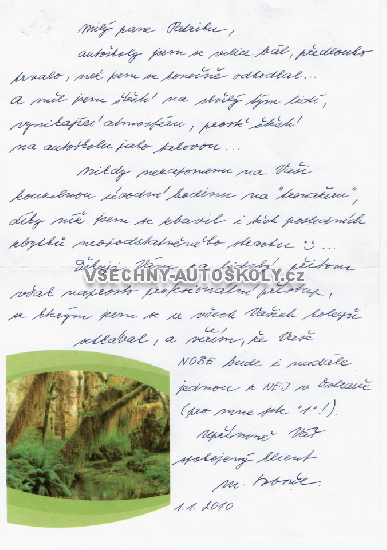 Milý pane Petříku,
autoškoly jsem se velice bál, předlouho
trvalo, než jsem se konečně odhodlal...
a měl jsem štěstí na skvělý tým lidí,
vynikající atmosféru, prostě štěstí
na autoškolu jako takovou...
Nikdy nezapomenu na Vaši
kouzelnou úvodní hodinu na "trenažéru",
díky níž jsem se zbavil i těch posledních
zbytků neopodstatněného strachu ☺...
Děkuji Vám za lidský přístup
VSECHNY-AUTOSKOLY.cz
včetně naprosto profesionální přístup,
se kterým jsem se u všech Vašich kolegů
setkával, a věřím, že Vaše
NOBE bude i nadále
jednou z NEJ v Ostravě
(pro mne jste "1"!).
Upřímně Váš
spokojený klient
M.
1.1.2010